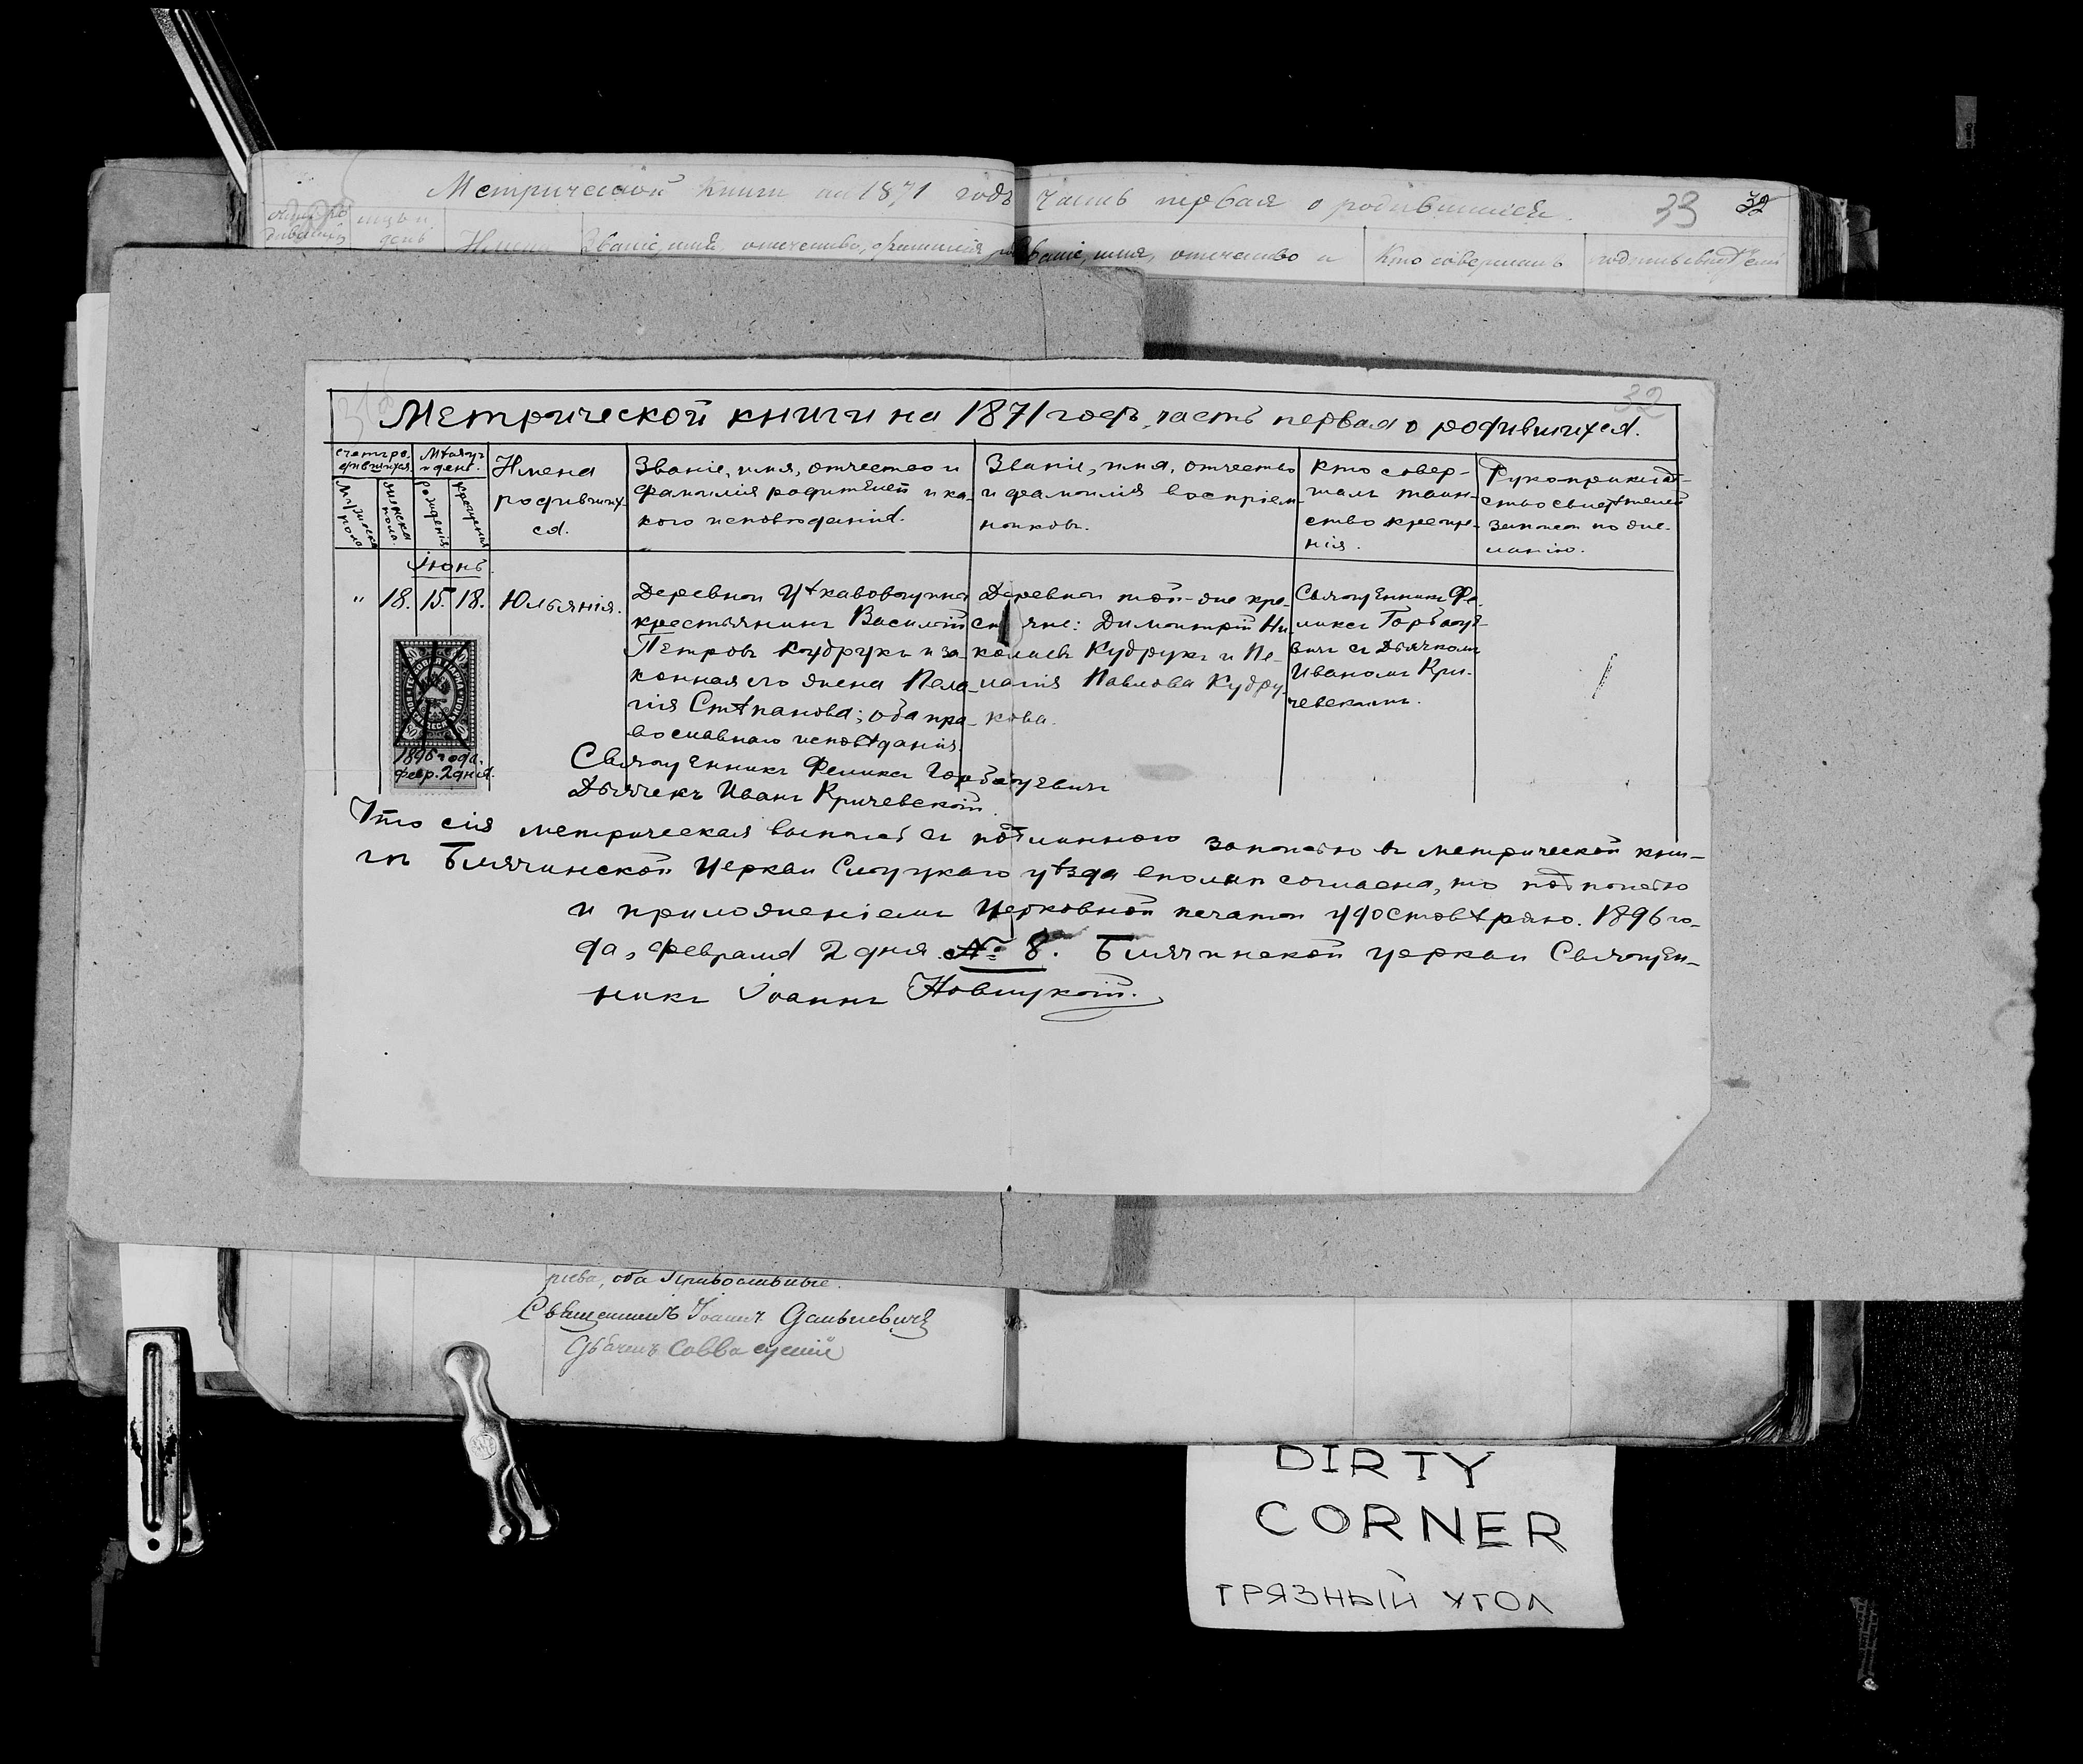 Метрической Книги на 1871 годъ часть первая о родившихся.
33 32
Имена Званіе, имя, отчество, фамилія Званіе, имя, отчество и Кто совершалъ
32
Метрической книги на 1871 годъ, часть первая о родившихся.
Счетъ ро-
дившихся.
Мѣсяцъ
и день.
Мужеска
пола
Женска
пола.
Рожденія
Крещенія
Имена
родивших-
ся.
Званіе, имя, отчество и
фамилія родителей и ка-
кого исповѣданія.
Званіе, имя, отчество
и фамилія воспріем-
никовъ.
Кто совер-
шалъ таин-
ство креще-
нія.
Рукоприклад-
ство свидѣтелей
записи по же-
ланію.
Іюнь.
" 18. 15. 18. Юльянія.
Деревни
крестьянинъ Василій
Петровъ Кудрукъ и за-
конная его жена Пела-
гія Стѣпанова; оба пра-
вославнаго исповѣданія.
Деревни той-же кре-
стьяне: Димитрій Ни-
колаевъ Кудрукъ и Пе-
лагія Павлова Кудру-
кова.
Священникъ Фе-
ликсъ Горбацэ-
вичъ съ Дьячкомъ
Иваномъ Кри-
чевскимъ.
1896 года.
февр. 2 дня.
Священникъ Феликсъ Горбацэвичъ
Дьячекъ Иванъ Кричевскій.
Что сія метрическая выпись съ подлинною записью въ метрической кни-
гѣ Блячинской Церкви Слуцкаго уѣзда вполнѣ согласна, то подписью
и приложеніемъ церковной печати удостовѣряю. 1896 го-
да, Февраля 2 дня. № 8. Блячинской церкви Священ-
никъ Іоаннъ Новицкій.
рьева, оба православные.
Священникъ Іоаннъ Даныевичъ
Дьячекъ Савва
DIRTY
CORNER
ГРЯЗНЫЙ УГОЛ